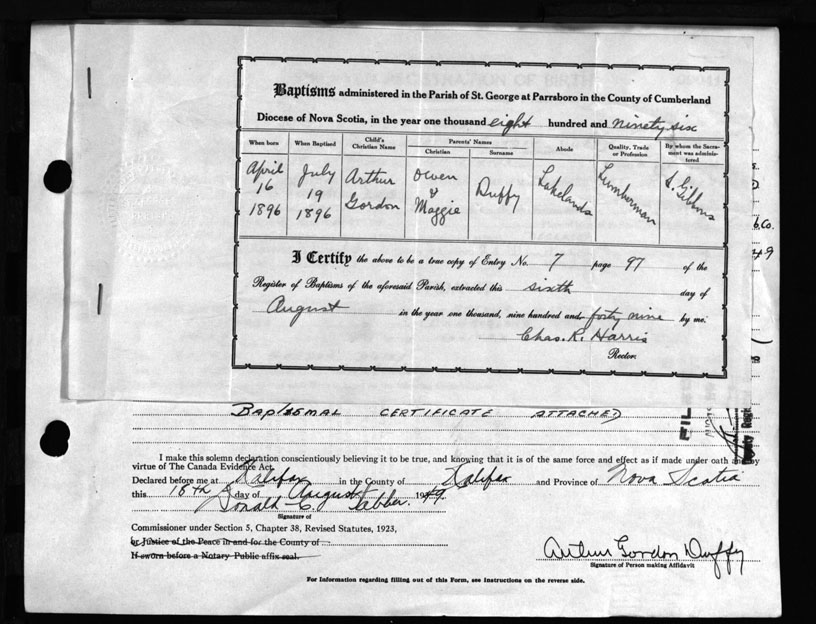 Baptisms administered in the Parish of St. George at Parrsboro in the County of Cumberland
Diocese of Nova Scotia, in the year one thousand eight hundred and ninety six
When born
When Baptised
Child's Christian Name
Parents' Names
Christian
Surname
Abode
Quality, Trade or Profession
By whom the Sacrament was administered
April 16 1896
July 19 1896
Arthur Gordon
Owen & Maggie
Duffy
Lakelands
Lumberman
S. Gibbons
I Certify the above to be a true copy of Entry No. 7 page 97 of the
Register of Baptisms of the aforesaid Parish, extracted this sixth day of
August in the year one thousand, nine hundred and forty nine by me.
Chas. R. Harris
Rector.
Baptismal Certificate Attached
I make this solemn declaration conscientiously believing it to be true, and knowing that it is of the same force and effect as if made under oath and by
virtue of The Canada Evidence Act.
Declared before me at Halifax in the County of Halifax and Province of Nova Scotia
this 16th day of August 1949.
Donald C.
Signature of
Commissioner under Section 5, Chapter 38, Revised Statutes, 1923,
or Justice of the Peace in and for the County of
If sworn before a Notary Public affix seal.
Arthur Gordon Duffy
Signature of Person making Affidavit
For Information regarding filling out of this Form, see Instructions on the reverse side.